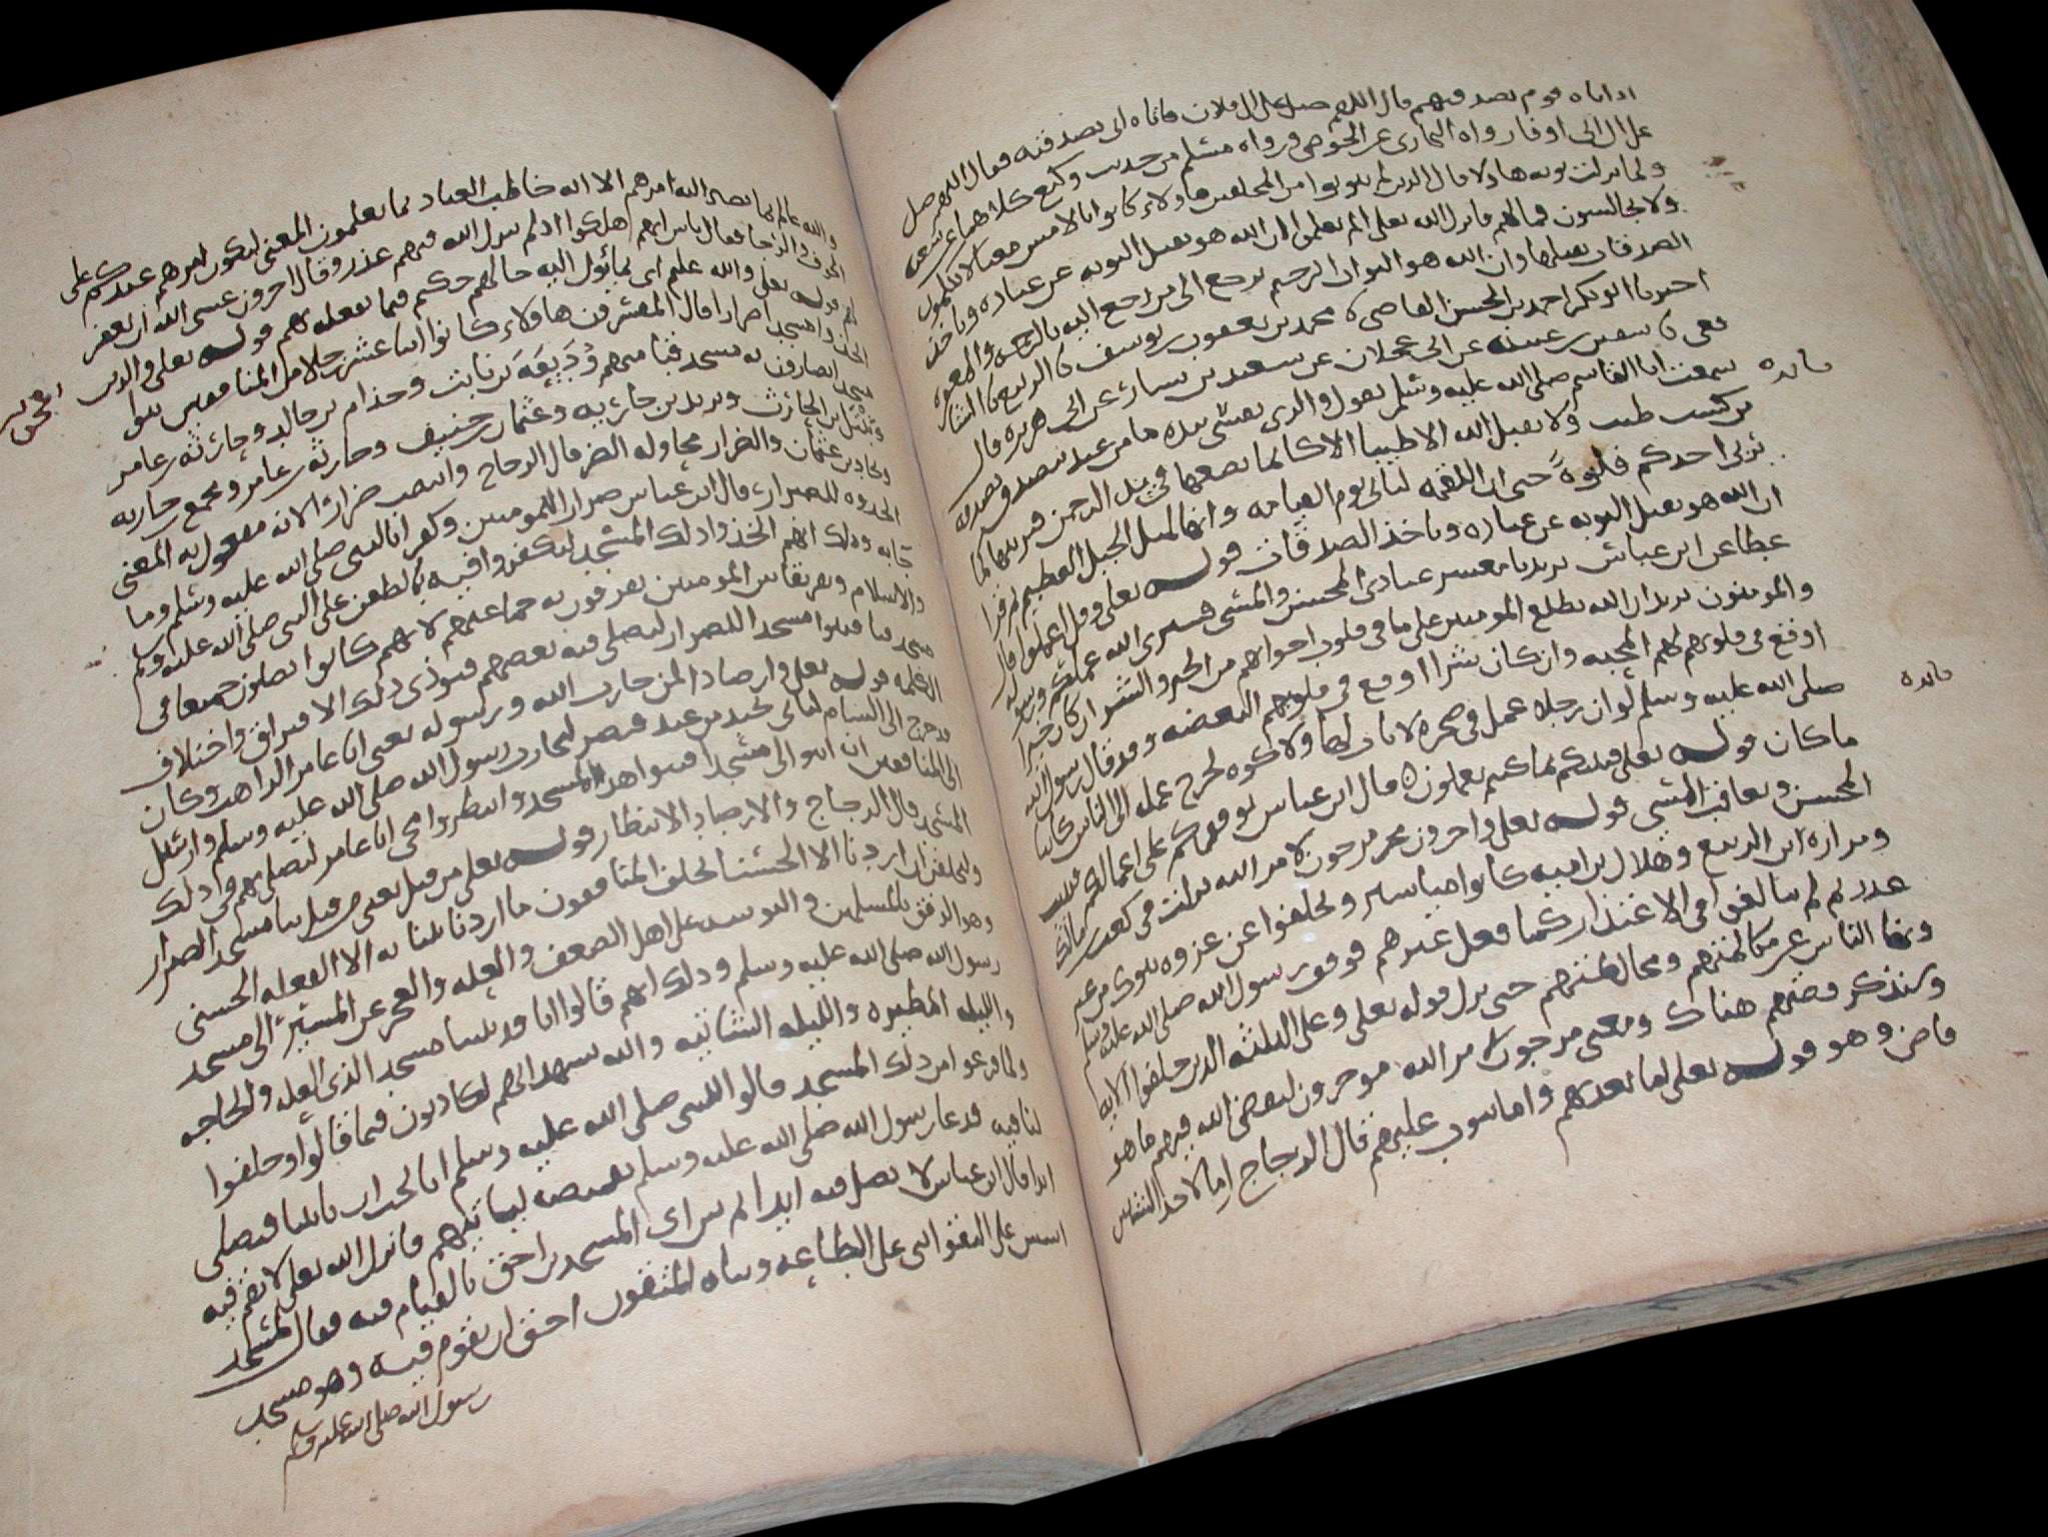 اذا اتاه قوم بصدقتهم قال اللهم صل على ال فلان فاتاه ابى بصدقته فقال اللهم صل
على ال ابى اوفا رواه البخارى عن الحوضى ورواه مسلم من حديث وكيع كلاهما عن شعبه
ولما نزلت توبه هاولا قال الذين لم يتوبوا من المخلفين هاولاء كانوا بالامس معنا لا يكلمون
ولا يجالسون فما لهم فانزل الله تعلى الم يعلموا ان الله هو يقبل التوبه عن عباده وياخذ
الصدقات يقبلها وان الله هو التواب الرحيم يرجع الى من رجع اليه بالرحمه والمغفره
اخبرنا ابو بكر احمد بن الحسن القاضى نا محمد بن يعقوب بن يوسف نا الربيع نا الشا
فعى نا سفين بن عيينه عن ابن عجلان عن سعيد بن يسار عن ابى هريره قال
سمعت ابا القاسم صلى الله عليه وسلم يقول والذى نفسى بيده ما من عبد يتصدق بصدقه
من كسب طيب ولا يقبل الله الا طيبا الا كانما يضعها فى يد الرحمن فيربيها كما
يربى احدكم فلوه حتى ان اللقمه لتاتى يوم القيامه وانها لمثل الجبل العظيم ثم قرا
ان الله هو يقبل التوبه عن عباده وياخذ الصدقات قوله تعلى وقل اعملوا قال
عطا عن ابن عباس يريد يا معشر عبادى المحسن والمسى فسيرى الله عملكم ورسوله
والمومنون يريد ان الله يطلع المومنين على ما فى قلوب اخوانهم من الخير والشر ان كان خيرا
اوقع فى قلوبهم لهم المحبه وان كان شرا اوقع فى قلوبهم البغضه وقد قال رسول الله
صلى الله عليه وسلم لو ان رجلا عمل فى صخره لا باب لها ولا كوه لخرج عمله الى الناس كاينا
ما كان قوله تعلى فينبكم بما كنتم تعملون قال ابن عباس يوقفكم على اعمالكم فيثيب
المحسن ويعاقب المسى قوله تعلى واخرون مرجون لامر الله نزلت فى كعب بن مالك
ومراره ابن الربيع وهلال بن اميه كانوا مياسير وتخلفوا عن غزوه تبوك من غير
عذر ثم لم يبالغوا فى الاعتذار كما فعل غيرهم فوقف رسول الله صلى الله عليه وسلم
ونها الناس عن مكالمتهم ومخالطتهم حتى نزل قوله تعلى وعلى الثلثه الذين خلفوا الايه
وسنذكر قصتهم هناك ومعنى مرجون لامر الله موخرون ليقضى الله فيهم ما هو
قاض وهو قوله تعلى اما يعذبهم واما يتوب عليهم قال الزجاج اما لاحد الشيئين
فايده
فايده
والله عالم بما يصير اليه امرهم الا انه خاطب العباد بما يعلمون المعنى ليكون امرهم عندكم على
الخوف والرجا فقال ناس انهم هلكوا اذ لم ينزل الله فيهم عذر وقال اخرون عسى الله ان يغفر
لهم قوله تعلى والله عليم اى بما يئول اليه حالهم حكيم فيما يفعله بهم قوله تعلى والذين
اتخذوا مسجدا ضرارا قال المفسرون هاولاء كانوا اثنا عشر رجلا من المنافقين بنوا
مسجدا يضارون به مسجد قبا منهم وديعه بن ثابت وحذام بن خالد وجاريه بن عامر
ونبتل بن الحارث وبجاد بن عثمان
محاوله الضر قال الزجاج وانتصب ضرارا لانه مفعول له المعنى
اتخذوه للضرار قال ابن عباس ضرارا للمومنين وكفرا بالنبى صلى الله عليه وسلم وما
جا به وذلك انهم اتخذوا ذلك المسجد ليكفروا فيه بالطعن على النبى صلى الله عليه وسلم
والاسلام وتفريقا بين المومنين يفرقون به جماعتهم لانهم كانوا يصلون جميعا فى
مسجد قبا فبنوا مسجد الضرار ليصلى فيه بعضهم فيودى ذلك الى الافتراق واختلاف
الكلمه قوله تعلى وارصادا لمن حارب الله ورسوله يعنى ابا عامر الراهب وكان
قد خرج الى الشام لياتى بجند من عند قيصر ليحارب رسول الله صلى الله عليه وسلم وارسل
الى المنافقين ان ابنوا لى مسجدا فبنوا هذا المسجد وانتظروا مجى ابا عامر ليصلى بهم فى ذلك
المسجد قال الزجاج والارصاد الانتظار قوله تعلى من قبل يعنى من قبل بنا مسجد الضرار
وليحلفن ان اردنا الا الحسنى ليحلف المنافقون ما اردنا ببنائه الا الفعله الحسنى
وهو الرفق بالمسلمين والتوسعه على اهل الضعف والعله والعجز عن المسير الى مسجد
رسول الله صلى الله عليه وسلم وذلك انهم قالوا انا قد بنينا مسجدا لذى العله والحاجه
والليله المطيره والليله الشاتيه والله يشهد انهم لكاذبون فيما قالوا وحلفوا
ولما فرغوا من ذلك المسجد قالوا للنبى صلى الله عليه وسلم انا نحب ان تاتينا فتصلى
لنا فيه فدعا رسول الله صلى الله عليه وسلم بقميصه ليلبسه ياتيهم فانزل الله تعلى لا تقم فيه
ابدا قال ابن عباس لا تصل فيه ابدا ثم بين اى المسجدين احق بالقيام فيه فقال لمسجد
اسس على التقوا اى على الطاعه وبناه المتقون احق ان تقوم فيه وهو مسجد
رسول الله صلى الله عليه وسلم